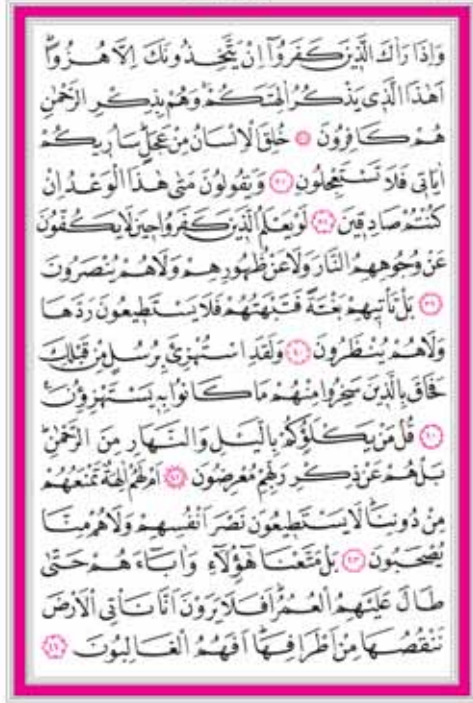 وَاِذَا رَاٰكَ الَّذ۪ينَ كَفَرُٓوا اِنْ يَتَّخِذُونَكَ اِلَّا هُزُوًاۜ
اَهٰذَا الَّذ۪ي يَذْكُرُ اٰلِهَتَكُمْۚ وَهُمْ بِذِكْرِ الرَّحْمٰنِ
هُمْ كَافِرُونَ ﴿٣٦﴾ خُلِقَ الْاِنْسَانُ مِنْ عَجَلٍۜ سَاُر۪يكُمْ
اٰيَات۪ي فَلَا تَسْتَعْجِلُونِ ﴿٣٧﴾ وَيَقُولُونَ مَتٰى هٰذَا الْوَعْدُ اِنْ
كُنْتُمْ صَادِق۪ينَ ﴿٣٨﴾ لَوْ يَعْلَمُ الَّذ۪ينَ كَفَرُوا ح۪ينَ لَا يَكُفُّونَ
عَنْ وُجُوهِهِمُ النَّارَ وَلَا عَنْ ظُهُورِهِمْ وَلَا هُمْ يُنْصَرُونَ
﴿٣٩﴾ بَلْ تَأْت۪يهِمْ بَغْتَةً فَتَبْهَتُهُمْ فَلَا يَسْتَط۪يعُونَ رَدَّهَا
وَلَا هُمْ يُنْظَرُونَ ﴿٤٠﴾ وَلَقَدِ اسْتُهْزِئَ بِرُسُلٍ مِنْ قَبْلِكَ
فَحَاقَ بِالَّذ۪ينَ سَخِرُوا مِنْهُمْ مَا كَانُوا بِه۪ يَسْتَهْزِؤُ۫نَ۟
﴿٤١﴾ قُلْ مَنْ يَكْلَؤُ۬كُمْ بِالَّيْلِ وَالنَّهَارِ مِنَ الرَّحْمٰنِۜ
بَلْ هُمْ عَنْ ذِكْرِ رَبِّهِمْ مُعْرِضُونَ ﴿٤٢﴾ اَمْ لَهُمْ اٰلِهَةٌ تَمْنَعُهُمْ
مِنْ دُونِنَاۜ لَا يَسْتَط۪يعُونَ نَصْرَ اَنْفُسِهِمْ وَلَا هُمْ مِنَّا
يُصْحَبُونَ ﴿٤٣﴾ بَلْ مَتَّعْنَا هٰٓؤُ۬لَٓاءِ وَاٰبَٓاءَهُمْ حَتّٰى
طَالَ عَلَيْهِمُ الْعُمُرُۜ اَفَلَا يَرَوْنَ اَنَّا نَأْتِي الْاَرْضَ
نَنْقُصُهَا مِنْ اَطْرَافِهَاۜ اَفَهُمُ الْغَالِبُونَ ﴿٤٤﴾